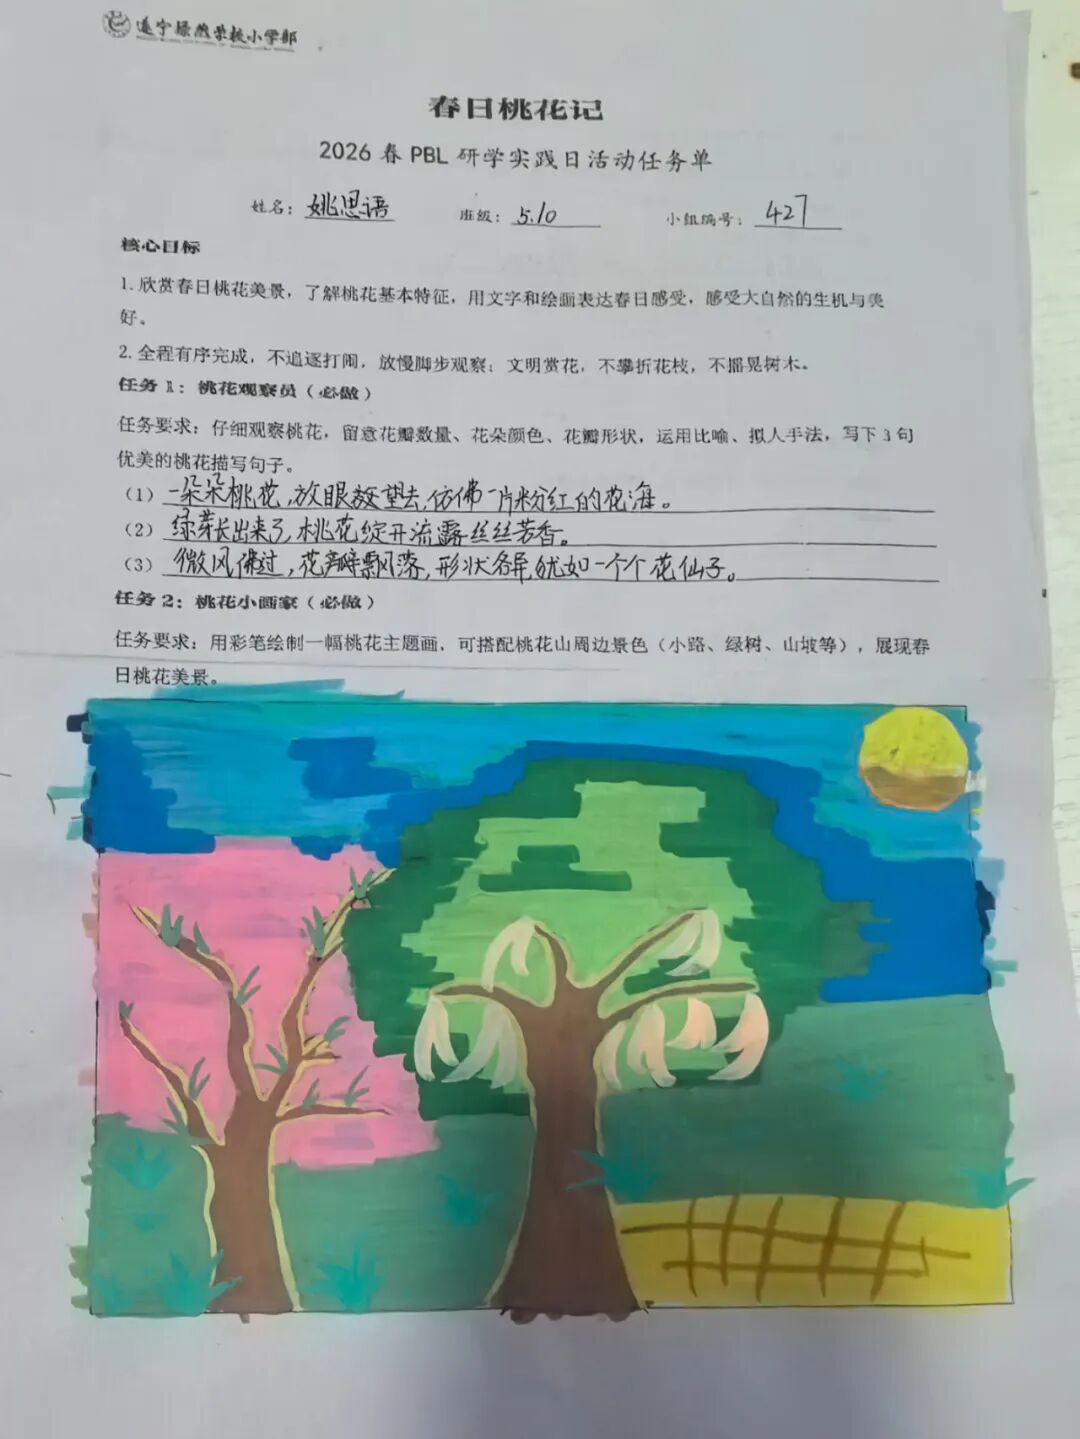 遂宁绿然学校小学部
春日桃花记
2026 春 PBL 研学实践日活动任务单
姓名：姚思语 班级：5.10 小组编号：427
核心目标
1. 欣赏春日桃花美景，了解桃花基本特征，用文字和绘画表达春日感受，感受大自然的生机与美
好。
2. 全程有序完成，不追逐打闹，放慢脚步观察；文明赏花，不攀折花枝，不摇晃树木。
任务 1：桃花观察员（必做）
任务要求：仔细观察桃花，留意花瓣数量、花朵颜色、花瓣形状，运用比喻、拟人手法，写下 3 句
优美的桃花描写句子。
（1）一朵朵桃花，放眼望去，仿佛一片粉红的花海。
（2）绿芽长出来了，桃花绽开流露丝丝芳香。
（3）微风佛过，花瓣飘落，形状各异，犹如一个个花仙子。
任务 2：桃花小画家（必做）
任务要求：用彩笔绘制一幅桃花主题画，可搭配桃花山周边景色（小路、绿树、山坡等），展现春
日桃花美景。